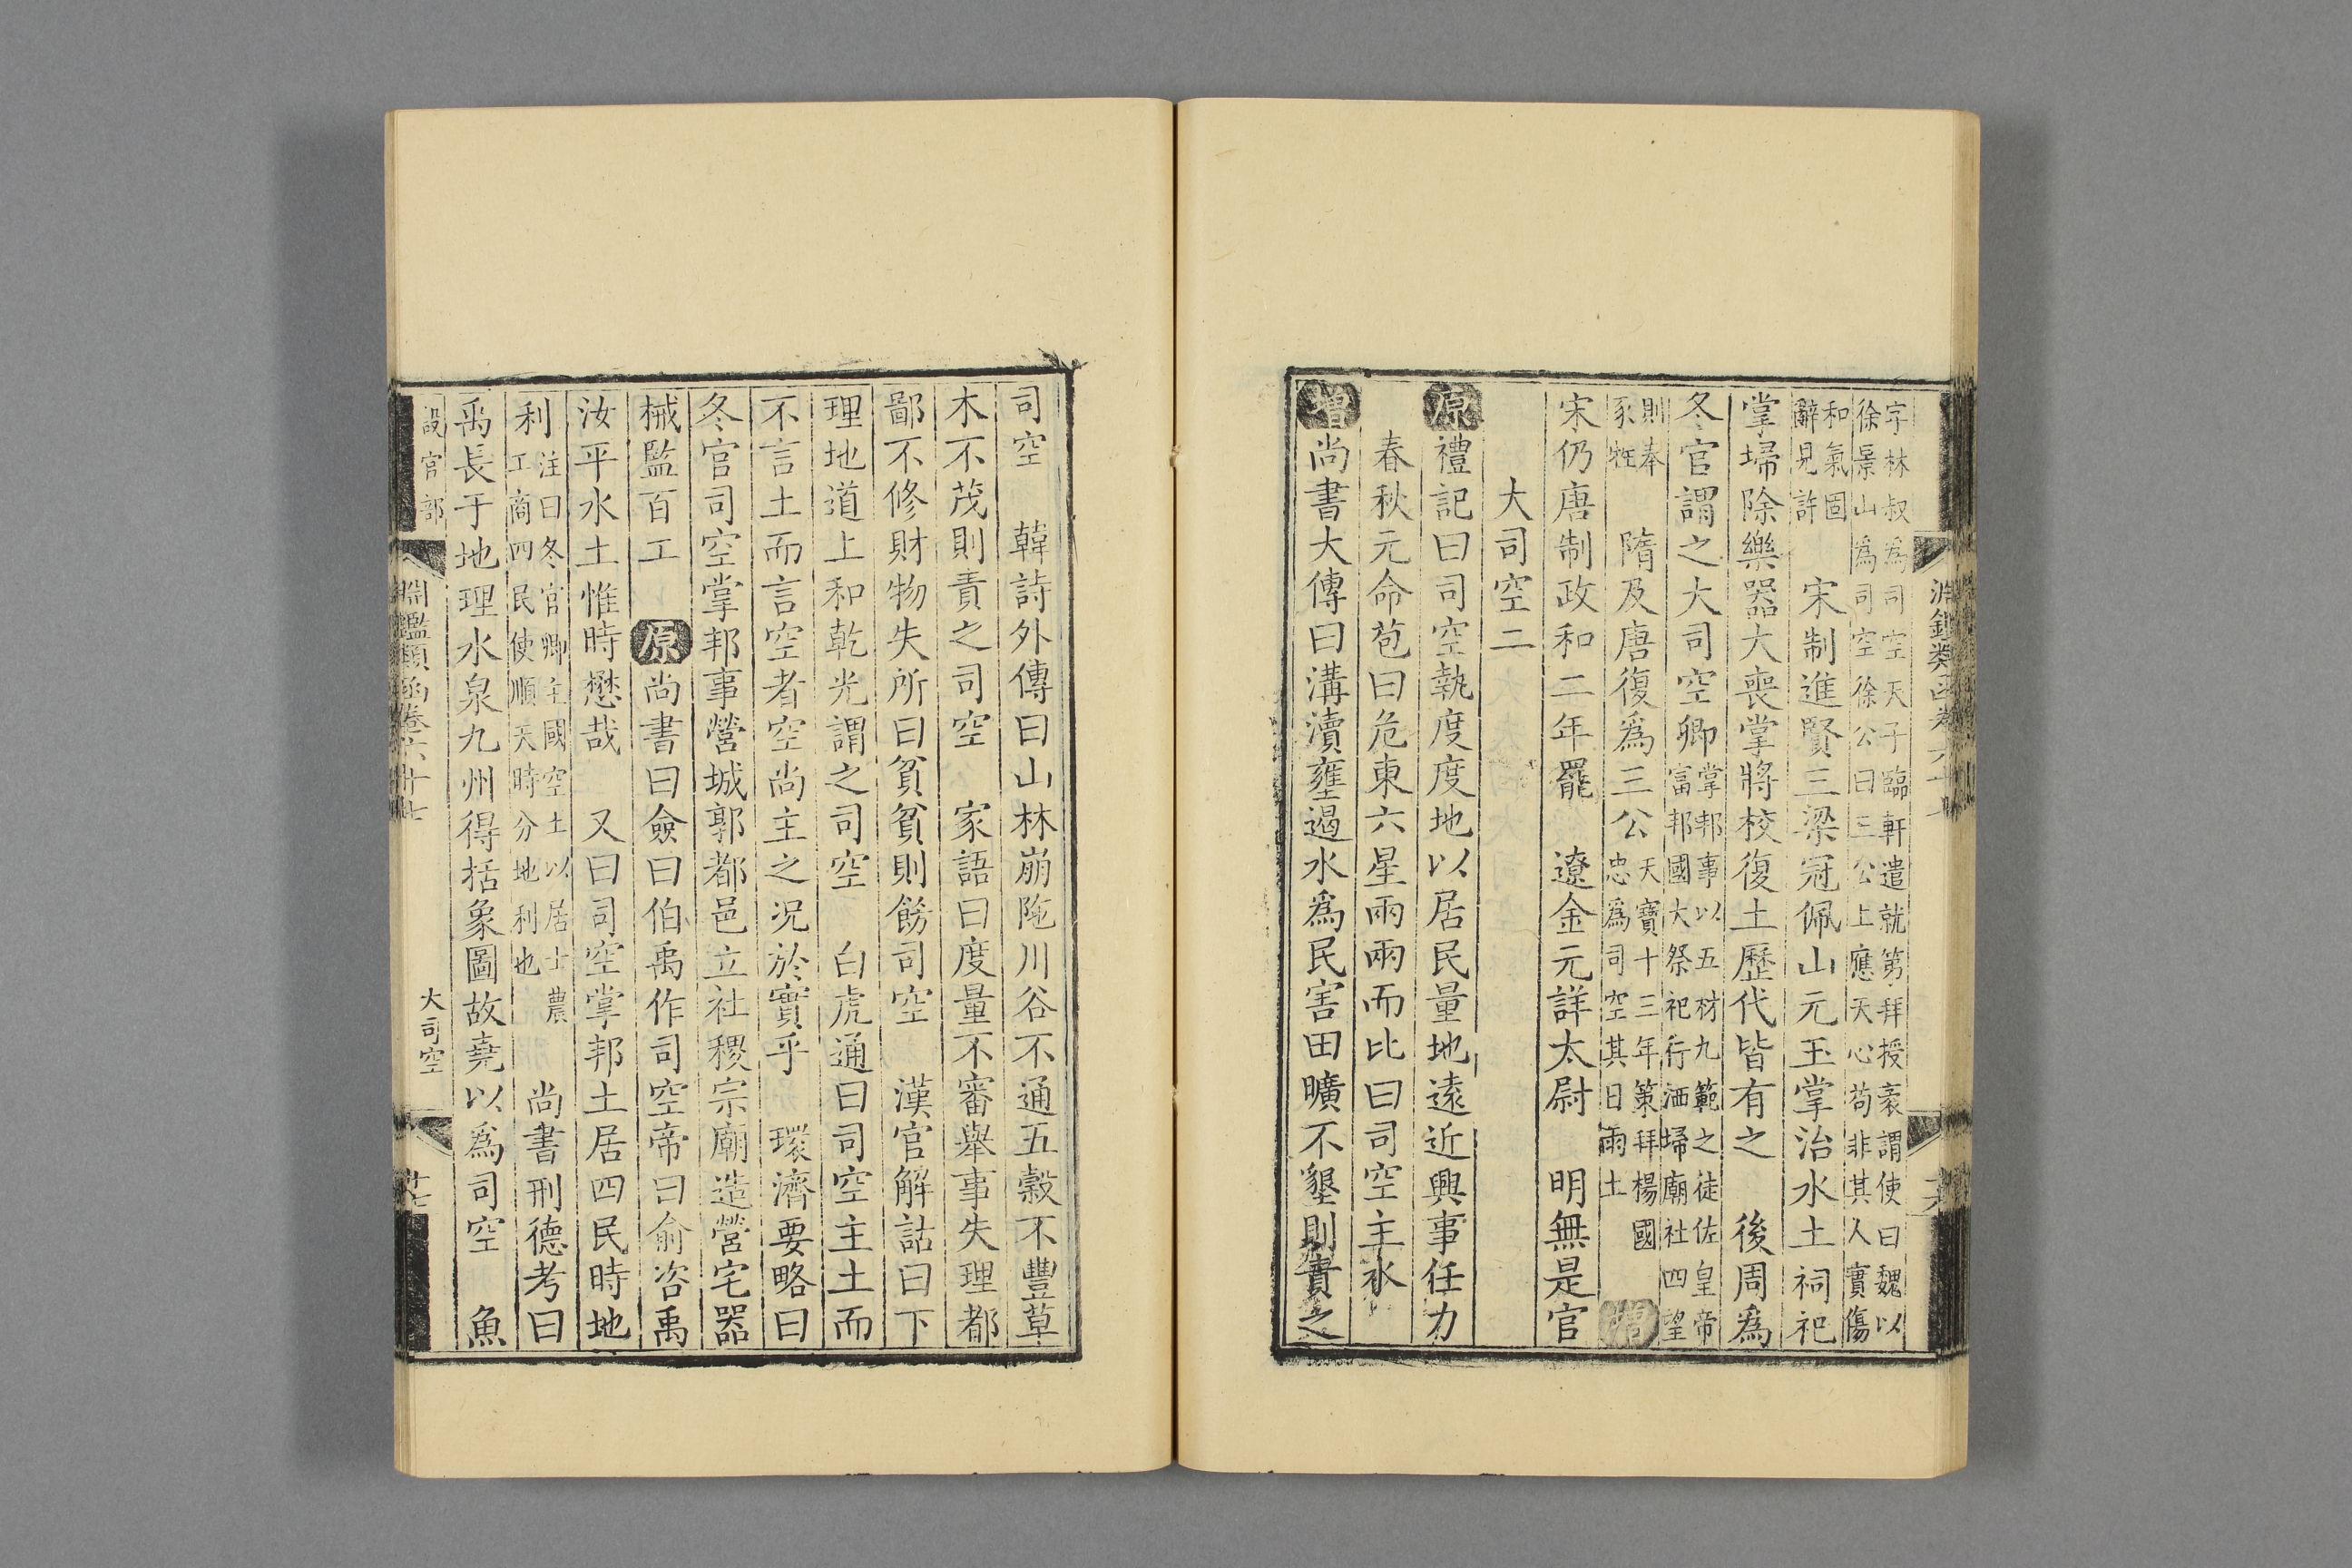 淵鑑類函卷六十七
字林叔爲司空天子臨軒遣就第拜授袤謂使曰魏以
徐景山爲司空徐公曰三公上應天心苟非其人實傷
和氣固
辭見許　宋制進賢三梁冠佩山元玉掌治水土祠祀
掌埽除樂器大喪掌將校復土歷代皆有之　後周爲
冬官謂之大司空卿掌邦事以五材九範之徒佐皇帝
富邦國大祭祀行洒埽廟社四望
則奉
豕牲　隋及唐復爲三公天寶十三年策拜楊國
忠爲司空其日雨土　增
宋仍唐制政和二年罷　遼金元詳太尉　明無是官
大司空二
原禮記曰司空執度度地以居民量地遠近興事任力
春秋元命苞曰危東六星兩兩而比曰司空主水
增尚書大傳曰溝瀆壅遏水爲民害田曠不墾則責之
司空　韓詩外傳曰山林崩陁川谷不通五穀不豐草
木不茂則責之司空　家語曰度量不審舉事失理都
鄙不修財物失所曰貧貧則飭司空　漢官解詁曰下
理地道上和乾光謂之司空　白虎通曰司空主土而
不言土而言空者空尚主之况於實乎　環濟要略曰
冬官司空掌邦事營城郭都邑立社稷宗廟造營宅器
械監百工　原尚書曰僉曰伯禹作司空帝曰俞咨禹
汝平水土惟時懋哉　又曰司空掌邦土居四民時地
利注曰冬官卿主國空土以居士農
工商四民使順天時分地利也　尚書刑德考曰
禹長于地理水泉九州得括象圖故堯以爲司空　魚
設官部
淵鑑類函卷六十七
大司空
十七